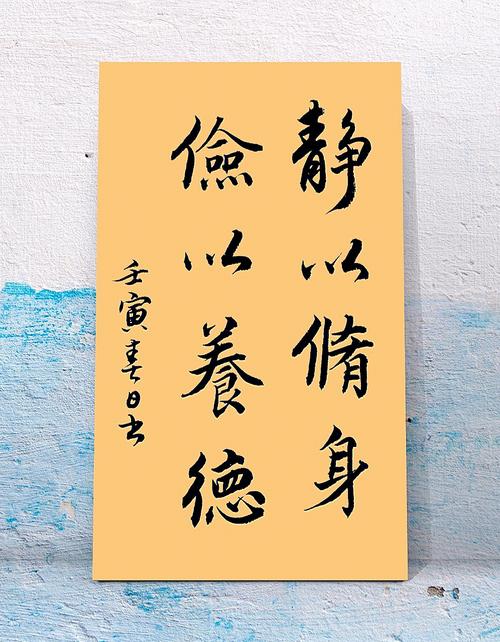 静以脩身
儉以養德
壬寅春日书